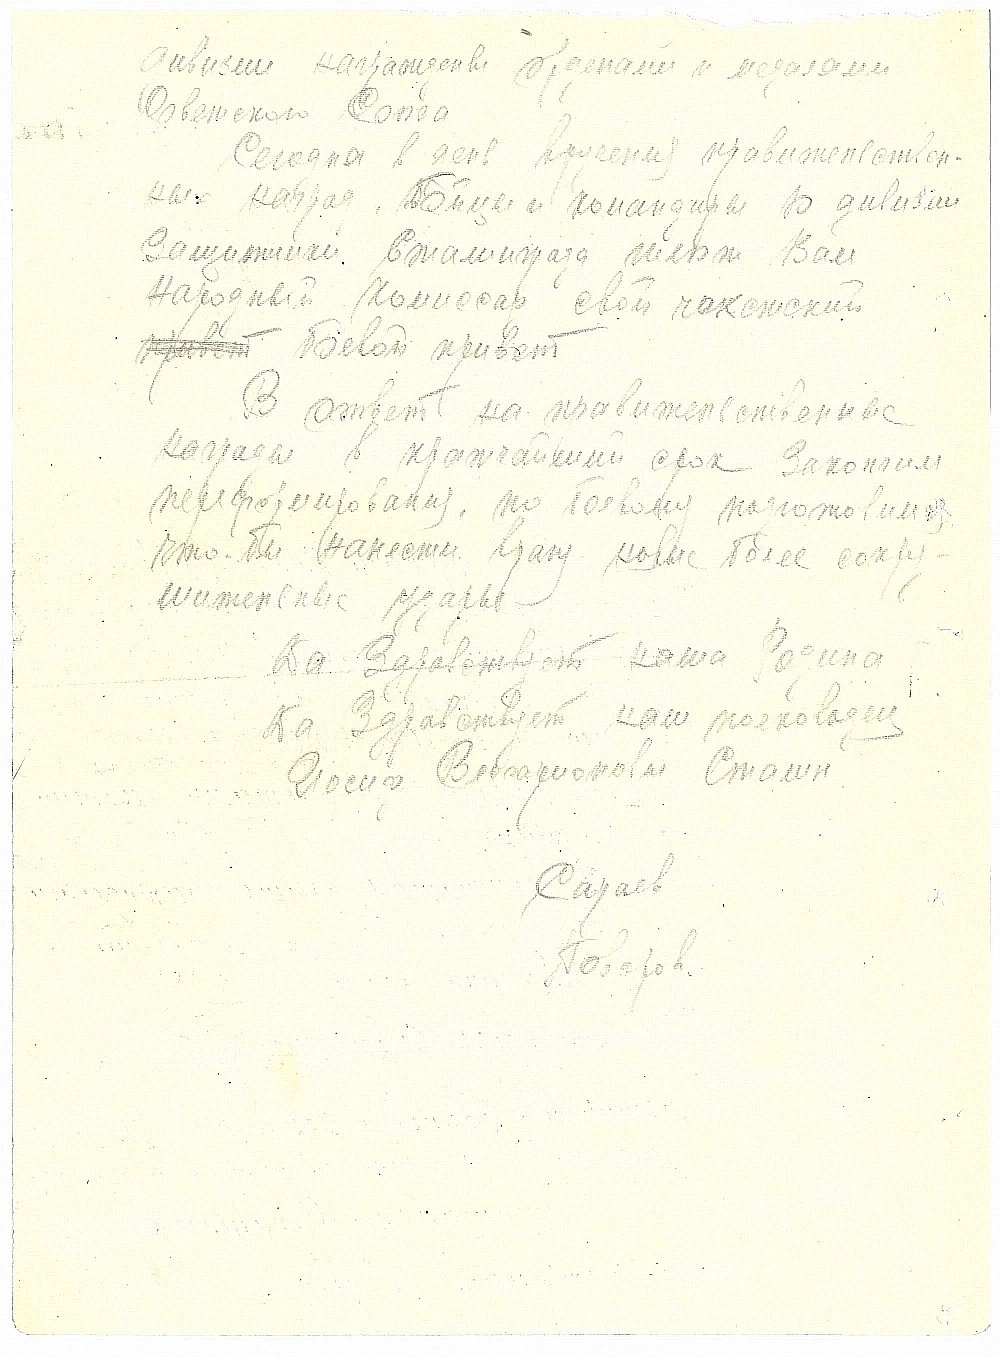 дивизии награждены орденами и медалями
Советского Союза
Сегодня в день вручения правительствен-
ных наград, бойцы и командиры 10 дивизии
Защитники Сталинграда шлют Вам
народный Комиссар свой чекистский
привет боевой привет
В ответ на правительственные
награды в кратчайший срок закончим
переформирования, по боевому подготовимся
что-бы нанести врагу новые более сокру-
шительные удары
Да Здравствует наша Родина
Да Здравствует наш полководец
Иосиф Виссарионовы Сталин
Сараев